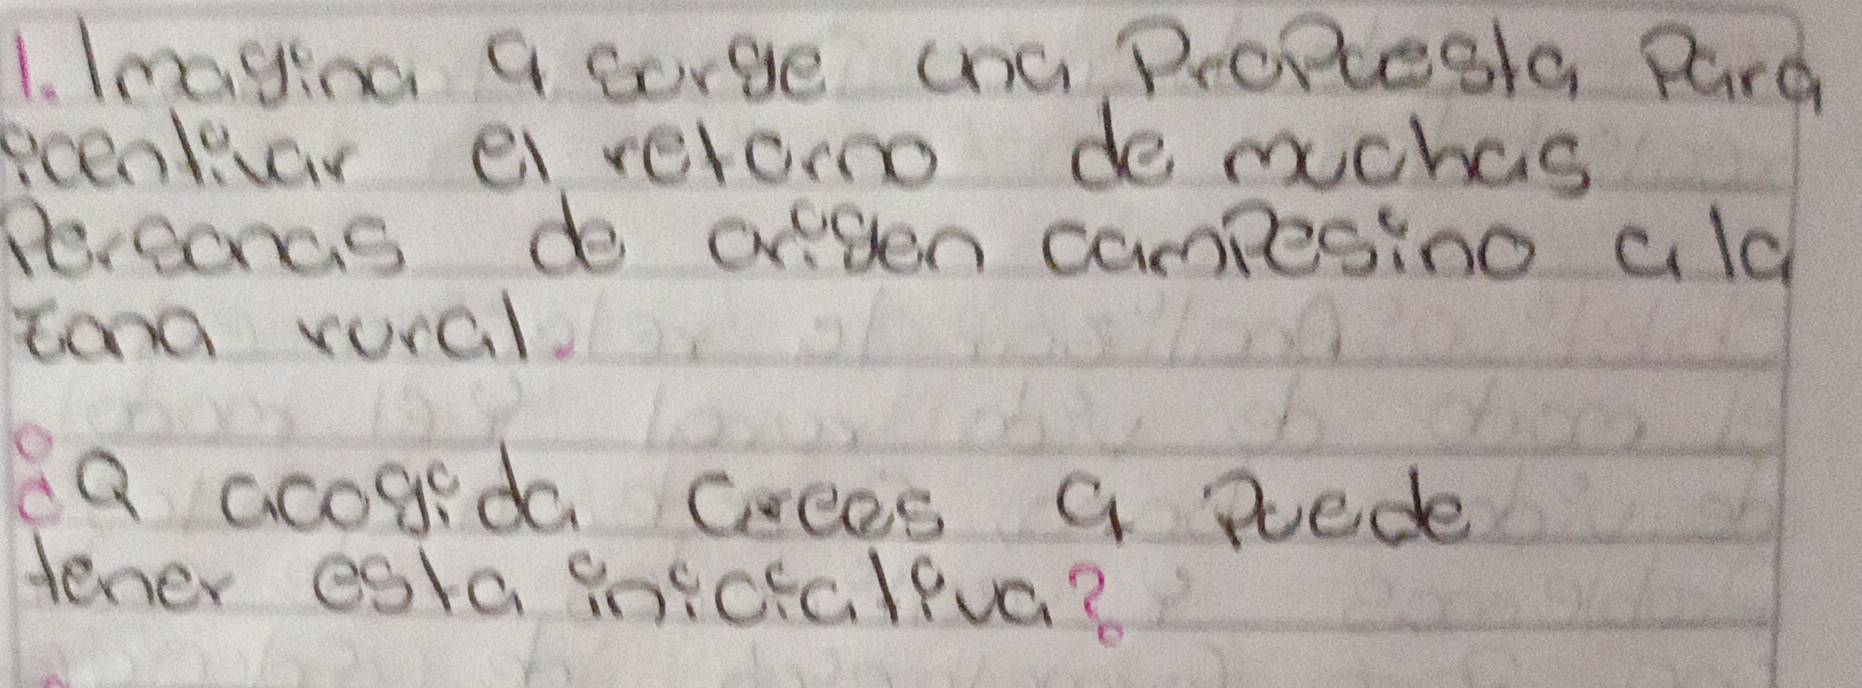 1. Imagina q sorge una Propuesta Para
icentivar el retorno de muchas
Personas de origen campesino a la
zona rural.
¿Q acogida Crees q Puede
tener esta inicialiva?